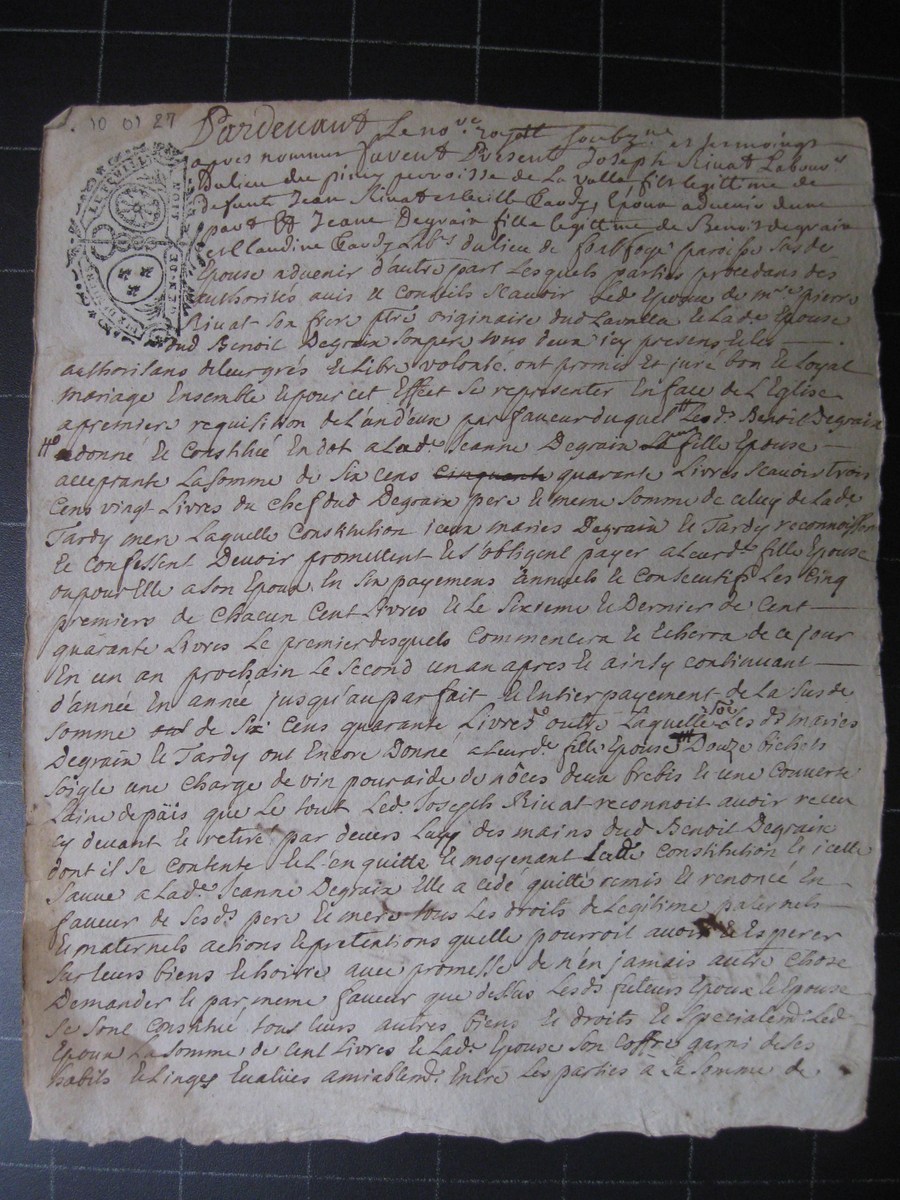 10 01 27
Pardevant Le no.re royal soubz.ne et temoings
apres nommes furent Present Joseph Rivat Labour.
du lieu du piney parroisse de La valla fils legittime de
defunts Jean Rivat et Tardy, Epoux advenir dune
part Et Jeane Degrain fille legittime de Benoit degrain
et Claudine Tardy Lab.rs du lieu de paroisse Susde
Epouse advenir d'autre part Lesquels parties procedans des
authorités avis et Conseils Scavoir Led. Epoux de m.re pierre
Rivat Son frere ptre originaire dud Lavalla et Lad.e Epouse
dud Benoit Degrain Son pere tous deux icy presens et les
authorisans de leur grés et Libre volonté, ont promis et juré bon et Loyal
mariage Ensemble et pour cet Effect Se representer En face de L'Eglise
a premiere requisition de L'un d'eux par faveur duquel Led.s Benoit Degrain
a donné et Constitué En dot a Lad.e Jeanne Degrain fille Epouse
acceptante La Somme de Six Cens Cinquante quarante Livres Scavoir trois
Cens vingt Livres du Chef dud Degrain pere et meme Somme de celuy de Lad.e
Tardy mere Laquelle Constitution iceux maries Degrain et Tardy reconnoissent
et confessent Devoir promettent et s'obligent payer a Leurd.e fille Epouse
ou pour Elle a Son Epoux En Six payemens annuels et Consecutifs Les Cinq
premiers de Chacun Cent Livres et Le Sixieme et Dernier de Cent
quarante Livres Le premier desquels Commencera et Echerra de ce jour
En un an prochain Le Second un an apres et ainsy continuant
d'année En année jusqu'au parfait et Entier payement de La Susde
Somme de Six Cens quarante Livres outre Laquelle Les d.s maries
Degrain et Tardy ont Encore Donné a Leurd.e fille Epouse Douze bichets
Soigle une Charge de vin pour aide de nôces deux brebis et une Couverte
Laine de païs que Le tout Led. Joseph Rivat reconnoit avoir receu
cy devant et retiré par devers Luy des mains dud Benoit Degrain
dont il Se Contente et L'en quitte et moyenant Lade Constitution et icelle
Sauve a Lad.e Jeanne Degrain Elle a cedé quitté remis et renoncé En
faveur de Sesd.s pere et mere tous Les droits de Legitime paternels
et maternels actions et pretentions quelle pourroit avoir et Esperer
Sur Leurs biens et hoirie avec promesse de n'en jamais autre Chose
Demander et par meme faveur que dessus Lesd.s futeurs Epoux et Epouse
Se Sont Constitué tous Leurs autres biens et droits et Specialem.t Led
Epoux La Somme de Cent Livres et Lad.e Epouse Son Coffre garni de Ses
habits et Linges Evalués amiablem.t Entre Les parties a La Somme de